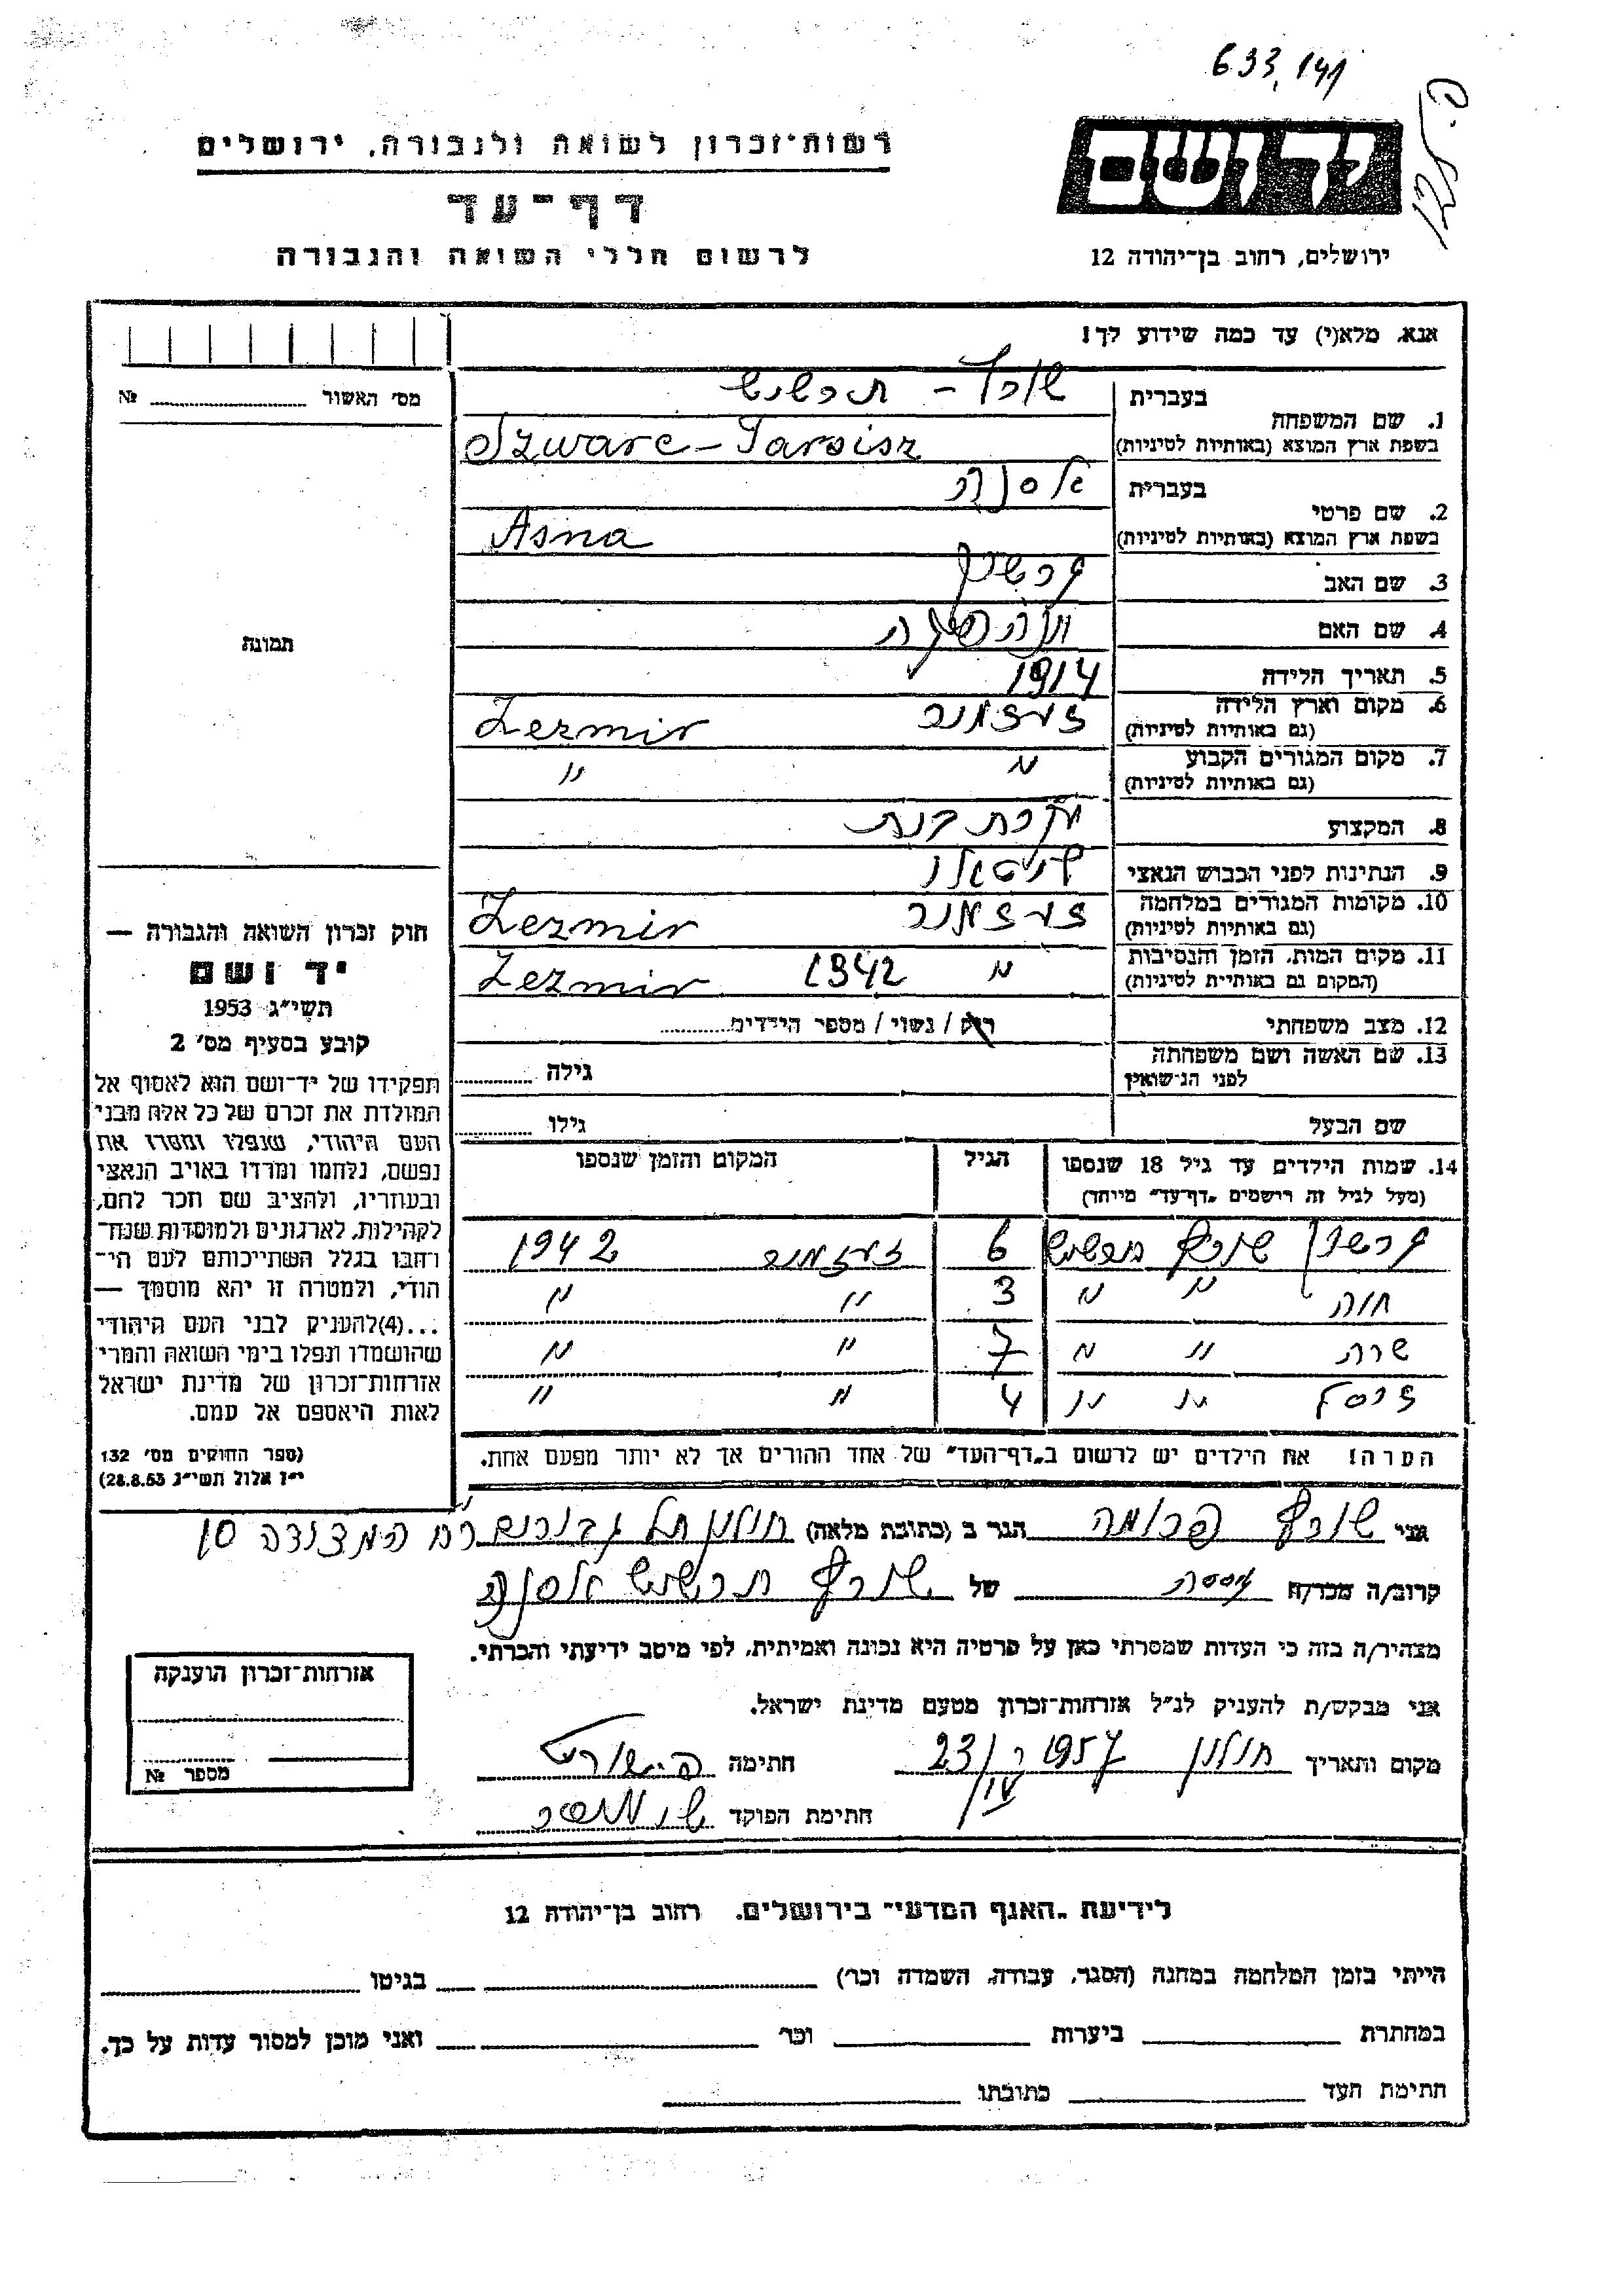 633,141
רשות-זכרון לשואה ולגבורה, ירושלים
דף-עד
לרשום חללי השואה והגבורה
ידושם
ירושלים, רחוב בן-יהודה 12
אנא, מלא(י) עד כמה שידוע לך!
מס' האשור № 
1. שם המשפחה
בעברית
שורץ - תרשיש
בשפת ארץ המוצא (באותיות לטיניות)
Szwarc-Tarsisz
2. שם פרטי
בעברית
אסנה
בשפת ארץ המוצא (באותיות לטיניות)
Asna
3. שם האב
4. שם האם
5. תאריך הלידה 1914
6. מקום וארץ הלידה
(גם באותיות לטיניות)
Zezmir
7. מקום המגורים הקבוע " "
(גם באותיות לטיניות)
8. המקצוע עקרת בית
9. הנתינות לפני הכבוש הנאצי
10. מקומות המגורים במלחמה
(גם באותיות לטיניות)
Zezmir
11. מקום המות, הזמן והנסיבות
(המקום גם באותיות לטיניות)
" 1942 Zezmir
12. מצב משפחתי רווק / נשוי / מספר הילדים
13. שם האשה ושם משפחתה
לפני הנישואין
גילה
שם הבעל גילו
14. שמות הילדים עד גיל 18 שנספו
(מעל לגיל זה רישמים "דף-עד" מיוחד)
הגיל
המקום והזמן שנספו
שורץ תרשיש 6 1942
חוה " " 3 " "
שרה " " 7 " "
יוסף " " 4 " "
הערה! את הילדים יש לרשום ב"דף-העד" של אחד ההורים אך לא יותר מפעם אחת.
תמונה
חוק זכרון השואה והגבורה —
יד ושם
תשי"ג 1953
קובע בסעיף מס' 2
תפקידו של יד-ושם הוא לאסוף אל
המולדת את זכרם של כל אלה מבני
העם היהודי, שנפלו ומסרו את
נפשם, נלחמו ומרדו באויב הנאצי
ובעוזריו, ולהציב שם וזכר להם,
לקהילות, לארגונים ולמוסדות שנח-
רחבו בגלל השתייכותם לעם הי-
הודי, ולמטרה זו יהא מוסמך —
...(4)להעניק לבני העם היהודי
שהושמדו ונפלו בימי השואה והמרי
אזרחות-זכרון של מדינת ישראל
לאות היאספם אל עמם.
(ספר החוקים מס' 132
י"ז אלול תשי"ג 28.8.53)
אני שורץ פרומה הגר ב (כתובת מלאה) חולון תל גבורים רח המצודה 10
קרוב/ה מכר/ה גיסה של שורץ תרשיש אסנה
מצהיר/ה בזה כי העדות שמסרתי כאן על פרטיה היא נכונה ואמיתית, לפי מיטב ידיעתי והכרתי.
אני מבקש/ת להעניק לנ"ל אזרחות-זכרון מטעם מדינת ישראל.
מקום ותאריך חולון 1957 23/IV חתימה
חתימת הפוקד
אזרחות-זכרון הוענקה
מספר №
לידיעת "האגף המדעי" בירושלים, רחוב בן-יהודה 12
הייתי בזמן המלחמה במחנה (הסגר, עבודה, השמדה וכר') בגיטו
במחתרת ביערות וכר' ואני מוכן למסור עדות על כך.
חתימת העד כתובתו